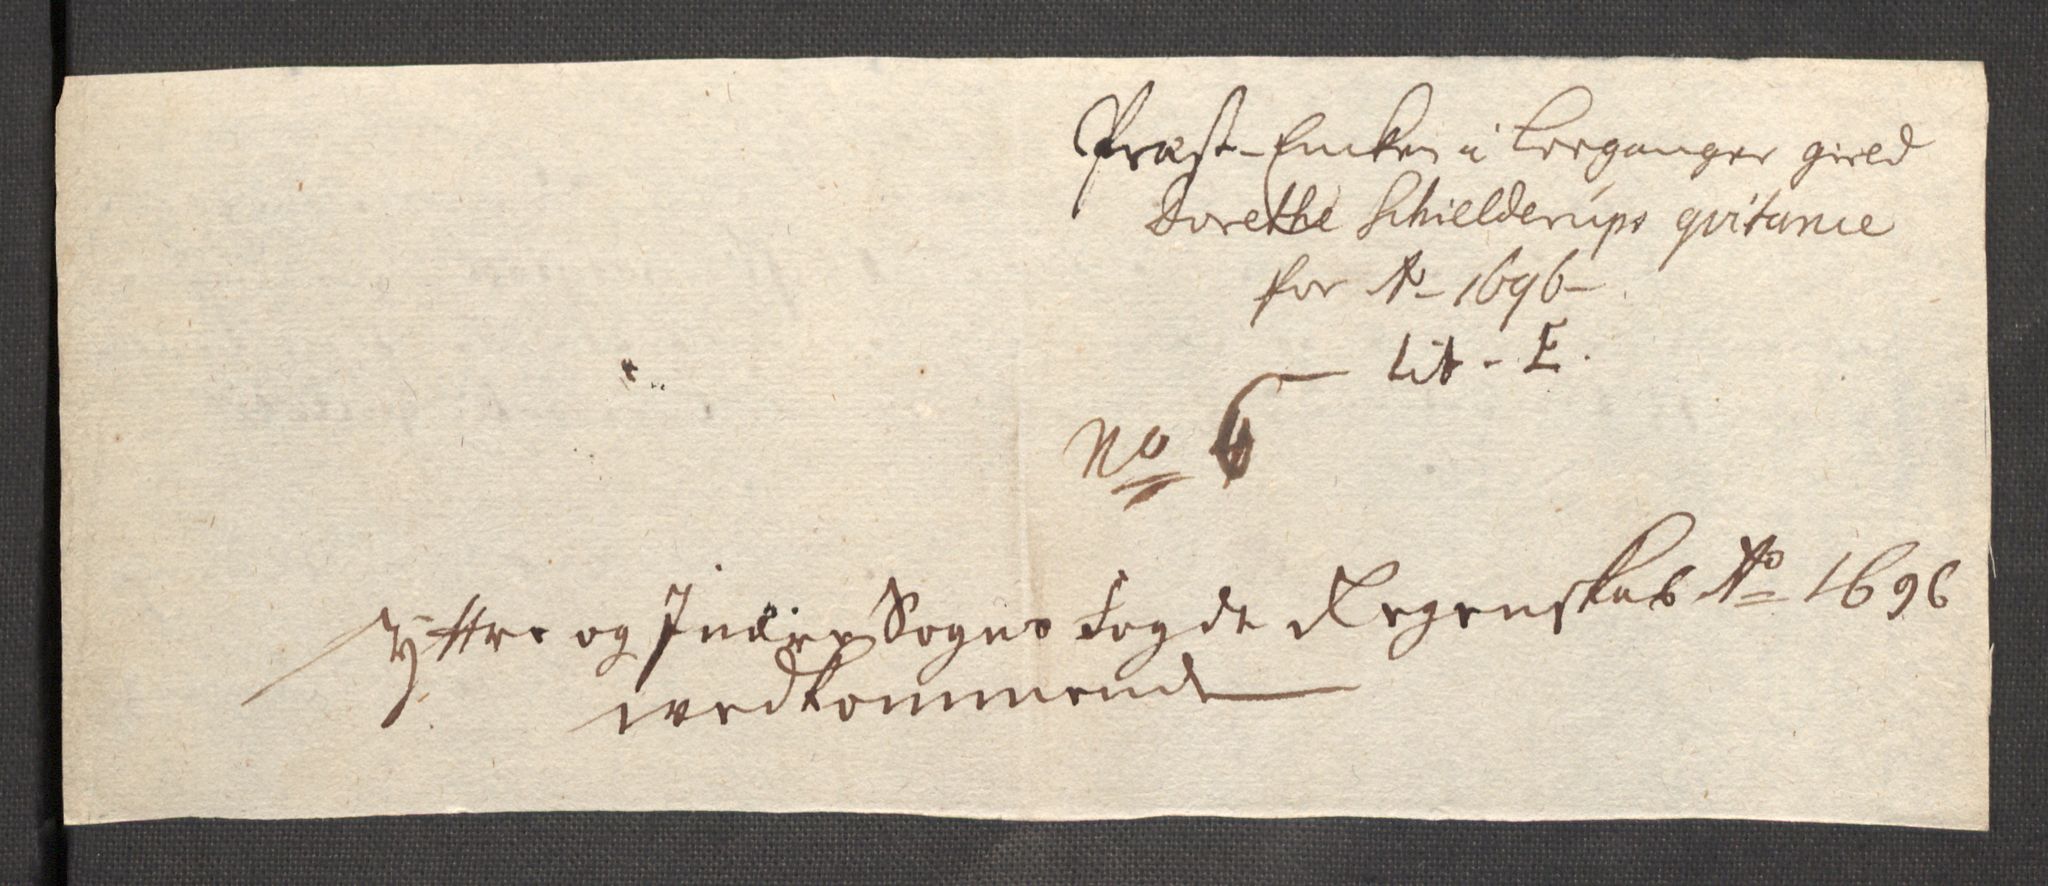 Præst-Encken i Leeganger gield
Dorethe Schielderups qvitance
for Ao 1696
Lit - E.
No
Yttre og Indre Sogns Fogde Regenskab Ao 1696
wedkommende